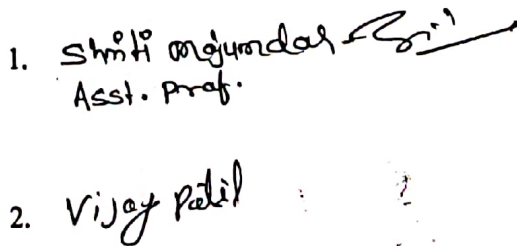 1. Smriti Mojumdar
Asst. Prof.
2. Vijay Patil